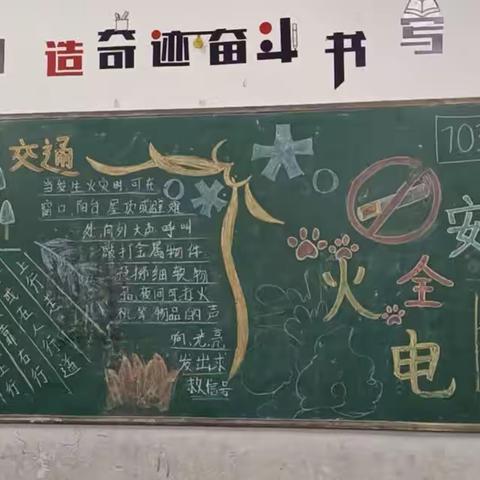 造奇迹奋斗书写
交通
当发生火灾时,可在
窗口、阳台、屋顶或避难
处,向外大声呼叫
敲打金属物件
投掷细软物
品,夜间可打火
机等物品的声
响、光亮
发出求
救信号
上行走
或在人行道
靠右行
行
火
全
电
安
103